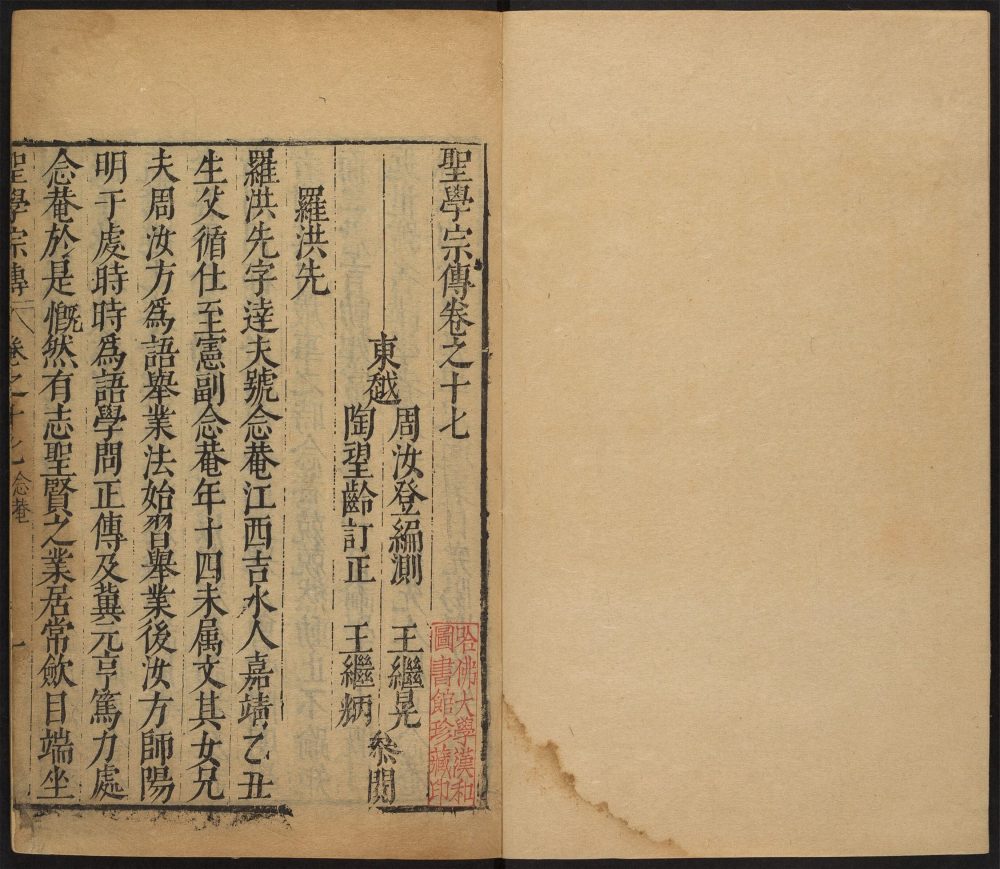 聖學宗傳卷之十七
東越
周汝登編測
王繼晃
陶望齡訂正
王繼炳
叅閱
羅洪先
羅洪先字達夫號念菴江西吉水人嘉靖乙丑
生父循仕至憲副念菴年十四未属文其女兄
夫周汝方爲語舉業法始習舉業後汝方師陽
明于處時時爲語學問正傳及冀元亨篤力處
念菴於是慨然有志聖賢之業居常歛目端坐
聖學宗傳
卷之十七
念菴
一
哈佛大學漢和
圖書館珍藏印